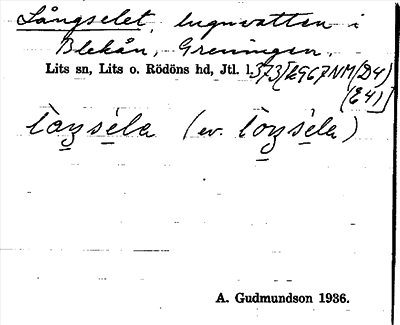 Långselet, lugnvatten i
Blekån, Greningen,
Lits sn, Lits o. Rödöns hd, Jtl. l. 373 [2967NM(D4)
(E4)]
lòŋsela (ev. lòŋsela)
A. Gudmundson 1936.